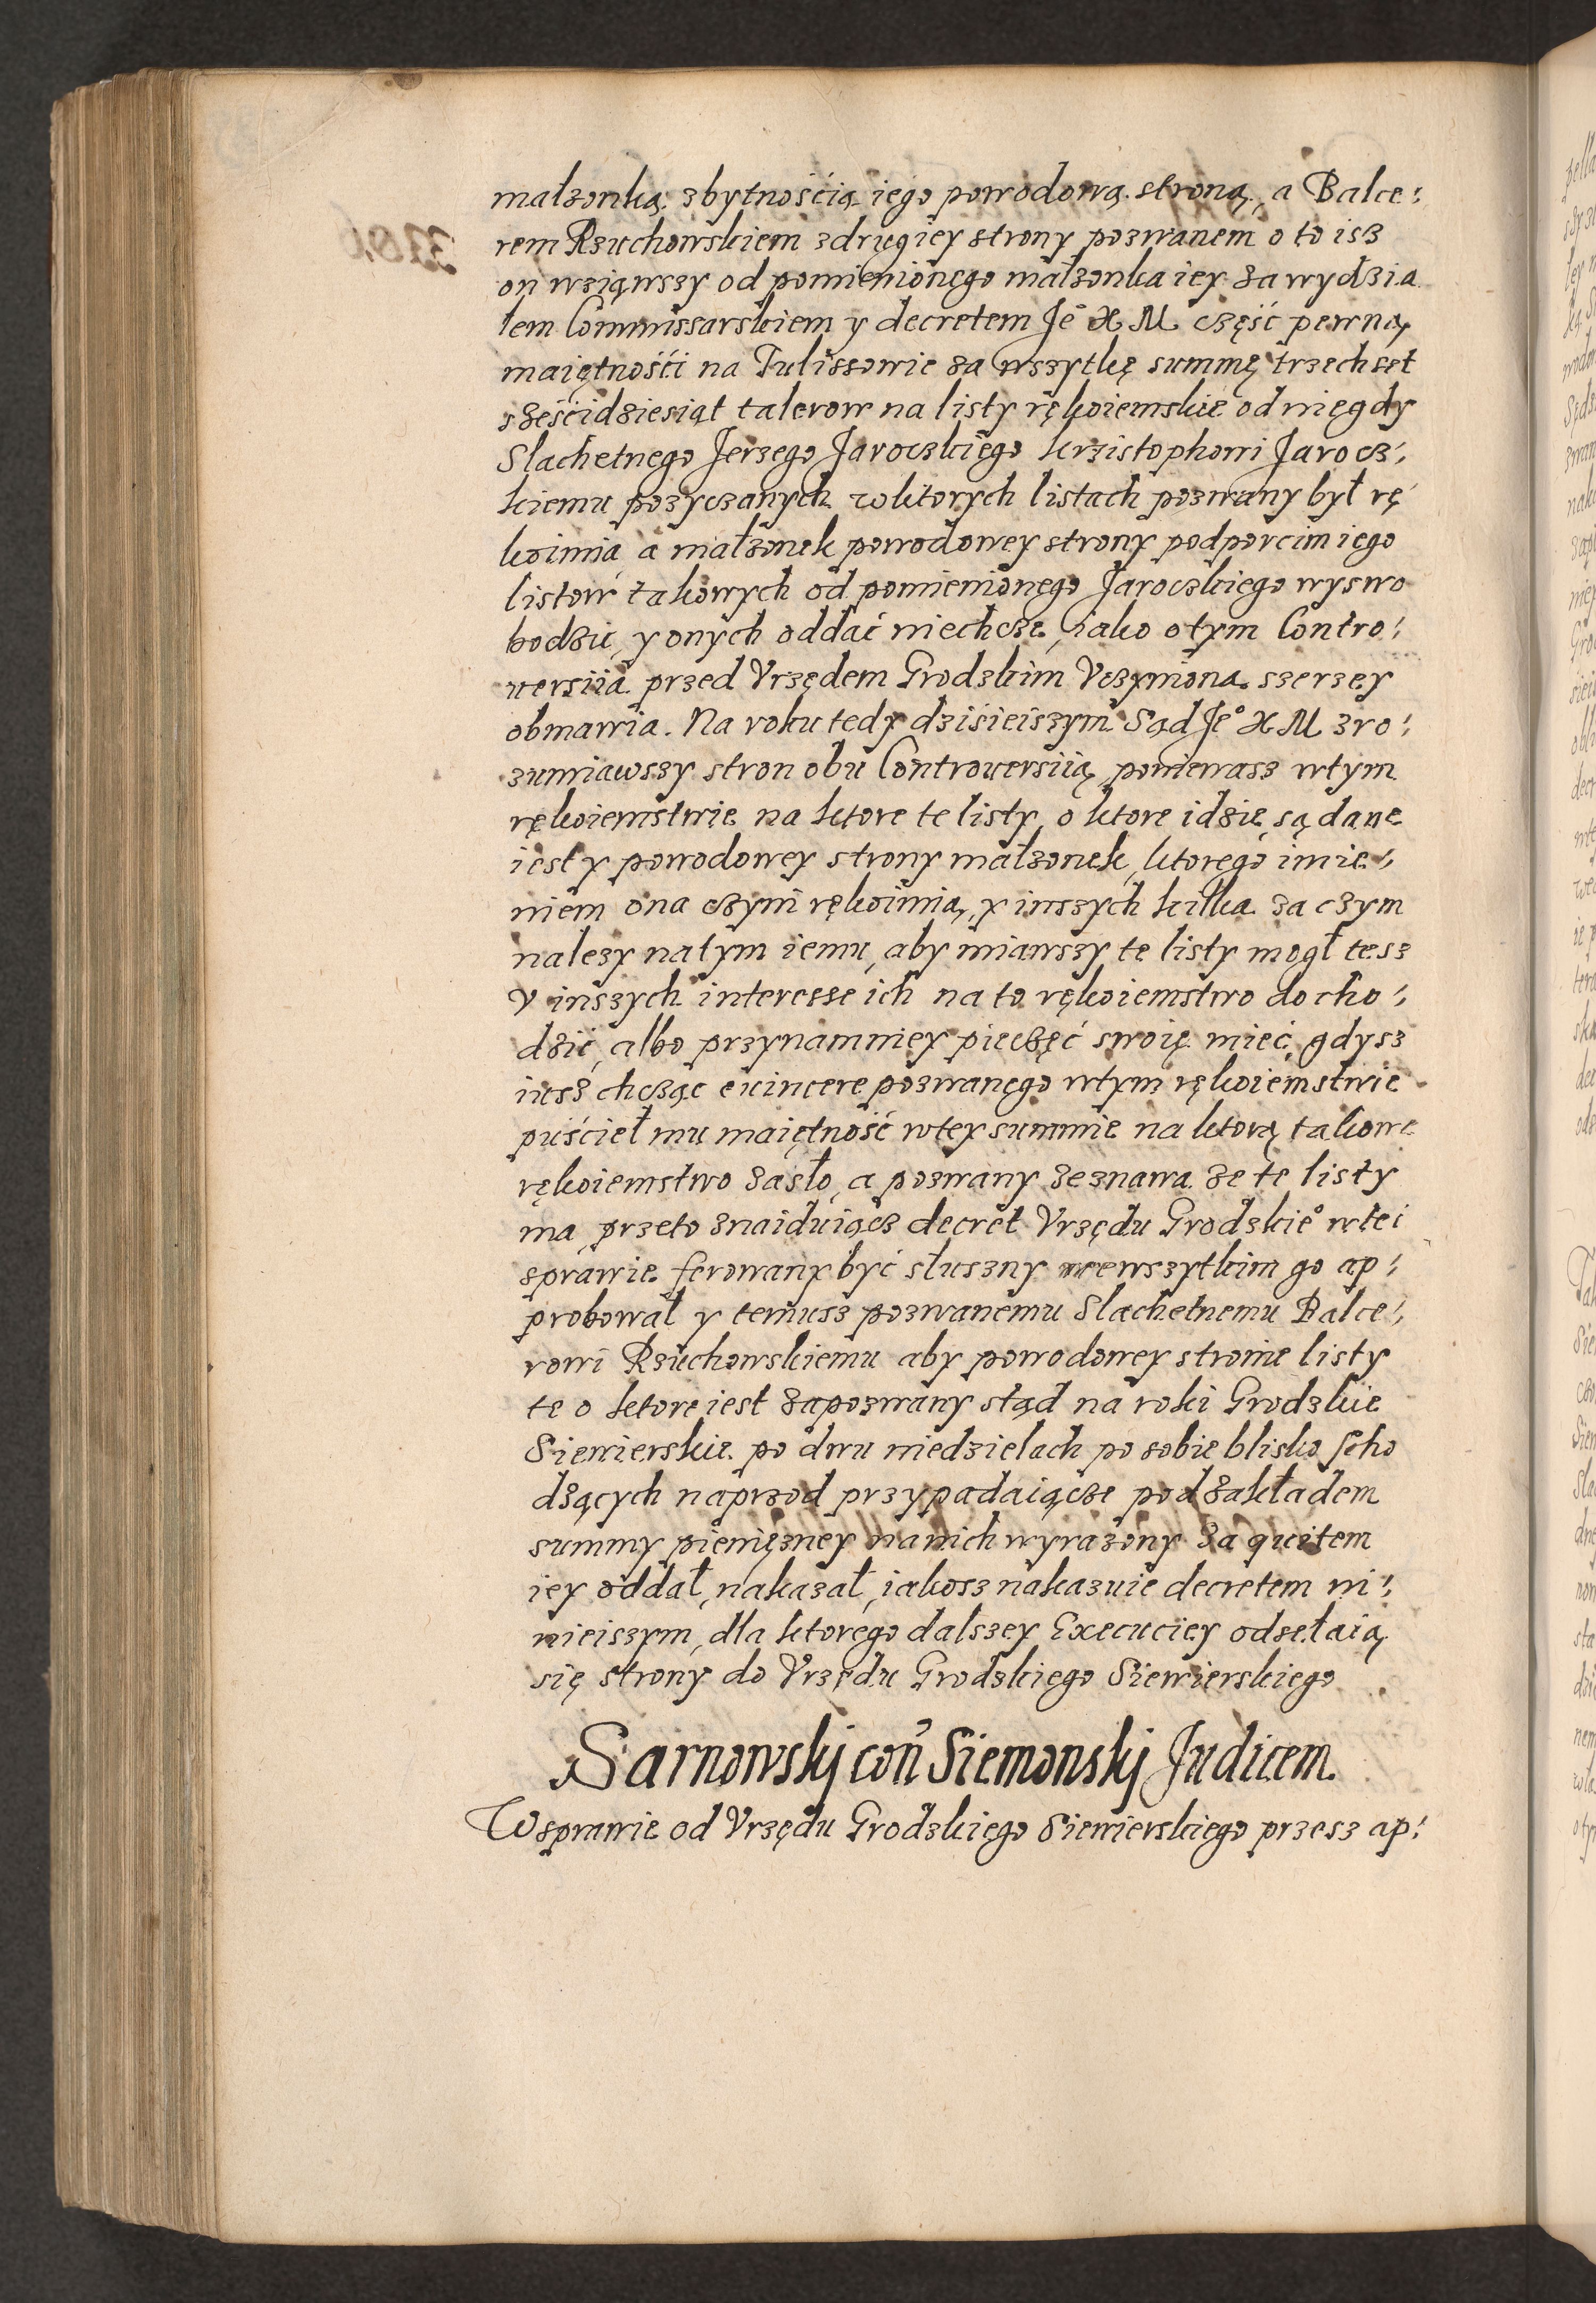 małzonką zbytnośćią iego powodową stroną, a Balce:
rem Rzuchowskiem zdrugiey strony pozwanem o to isz
on wziąwszy od pomienionego małzonka iey za wydzia
łem Commissarskiem y decretem Je° X M część pewną
maiętnośći na Tulissowie za wszytkę summę trzechset
sześćidziesiąt talerow na listy rękoiemskie od niegdy
Slachetnego Jerzego Jaroczkiego Krzistophowi Jarocz:
kiemu pozyczanych wktorych listach pozwany był rę
koimią a małzonek powodowey strony podparcim iego
listow takowych od pomienionego Jaroczkiego wyswo
bodzić, y onych oddać niechcze, iako otym Contro:
versiia przed Vrzędem Grodzkim Vczyniona szerzey
obmawia. Na roku tedy dzisieiszym Sąd Je° X M zro:
zumiawszy stron obu Controversiią, poniewasz wtym
rękoiemstwie na ktore te listy, o ktore idzie, są dane
iest y powodowey strony małzonek, ktorego imie:
niem ona czyni rękoimią, y inszych kilka za czym
nalezy natym iemu, aby miawszy te listy mogł tesz
V inszych interesse ich na to rękoiemstwo docho:
dzić, albo przynamniey pieczęć swoię mieć, gdysz
iusz chcząc evincere pozwanego wtym rękoiemstwie
puśćieł mu maiętność wtey summie na ktorą takowe
rękoiemstwo zasło, a pozwany zeznawa ze te listy
ma, przeto znaiduiącz decret Vrzędu Grodzkie° wtei
sprawie ferowany być słuszny weewszytkim go ap:
probował y temusz pozwanemu Slachetnemu Balce:
rowi Rzuchowskiemu aby powodowey stronie listy
te o ktore iest zapozwany stąd na roki Grodzkie
Siewierskie po dwu niedzielach po sobie blisko scho
dzących naprzod przypadaiącze pod zakładem
summy pieniężney na nich wyrazony za quitem
iey oddał, nakazał, iakosz nakazuie decretem ni:
nieiszym, dla ktorego dalszey Execuciey odsełaią
się strony do Vrzędu Grodzkiego Siewierskiego
Sarnowskj coñ Siemonskj Judicem
Wsprawie od Vrzędu Grodzkiego Siewierskiego przesz ap: